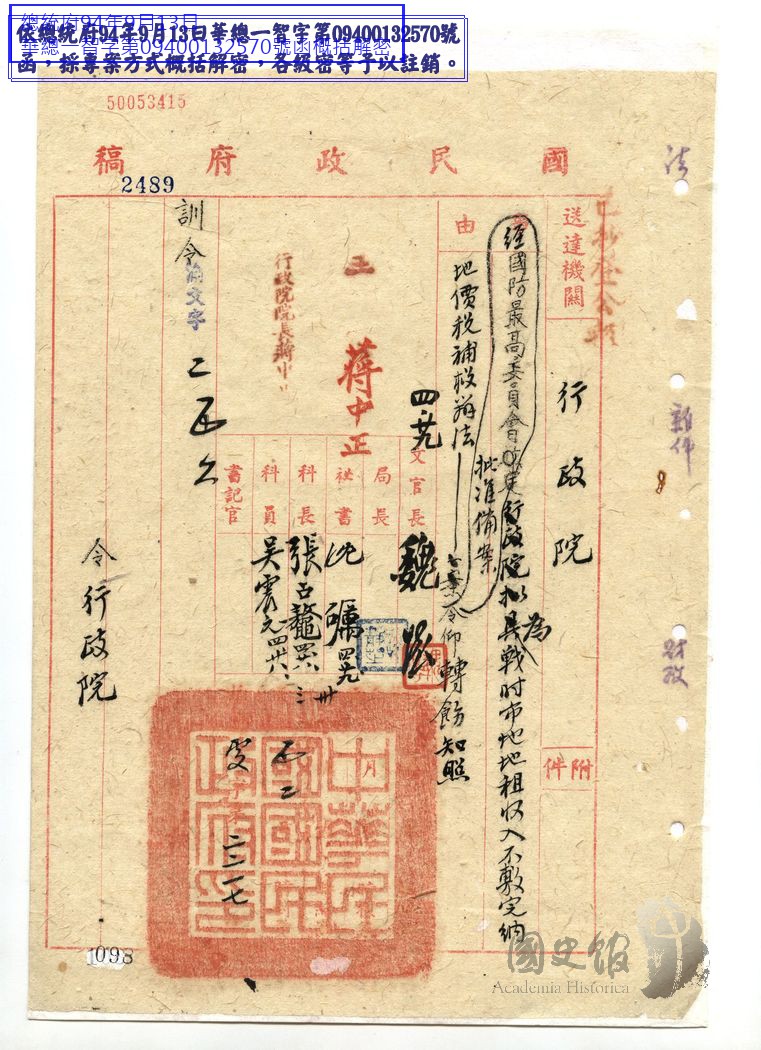 總統府94年9月13日
華總一智字第09400132570號函概括解密
依總統府94年9月13日華總一智字第09400132570號
函，採專案方式概括解密，各級密等予以註銷。
50053415
國民政府稿
2489
法
雜件
財政
送達機關
行政院
附件
由
經國防最高委員會
行政院擬具戰时市地地租收入不敷完納
為
地價稅補救辦法
批准備案
案令仰轉飭知照
文官長
魏
四廿九
局長
秘書
科長
張
科員
吳震
書記官
蔣中正
行政院院長蔣中
訓令
文字
令行政院
中華民國國民政府印
月
二二一七
1098
國史館
Academia Historica